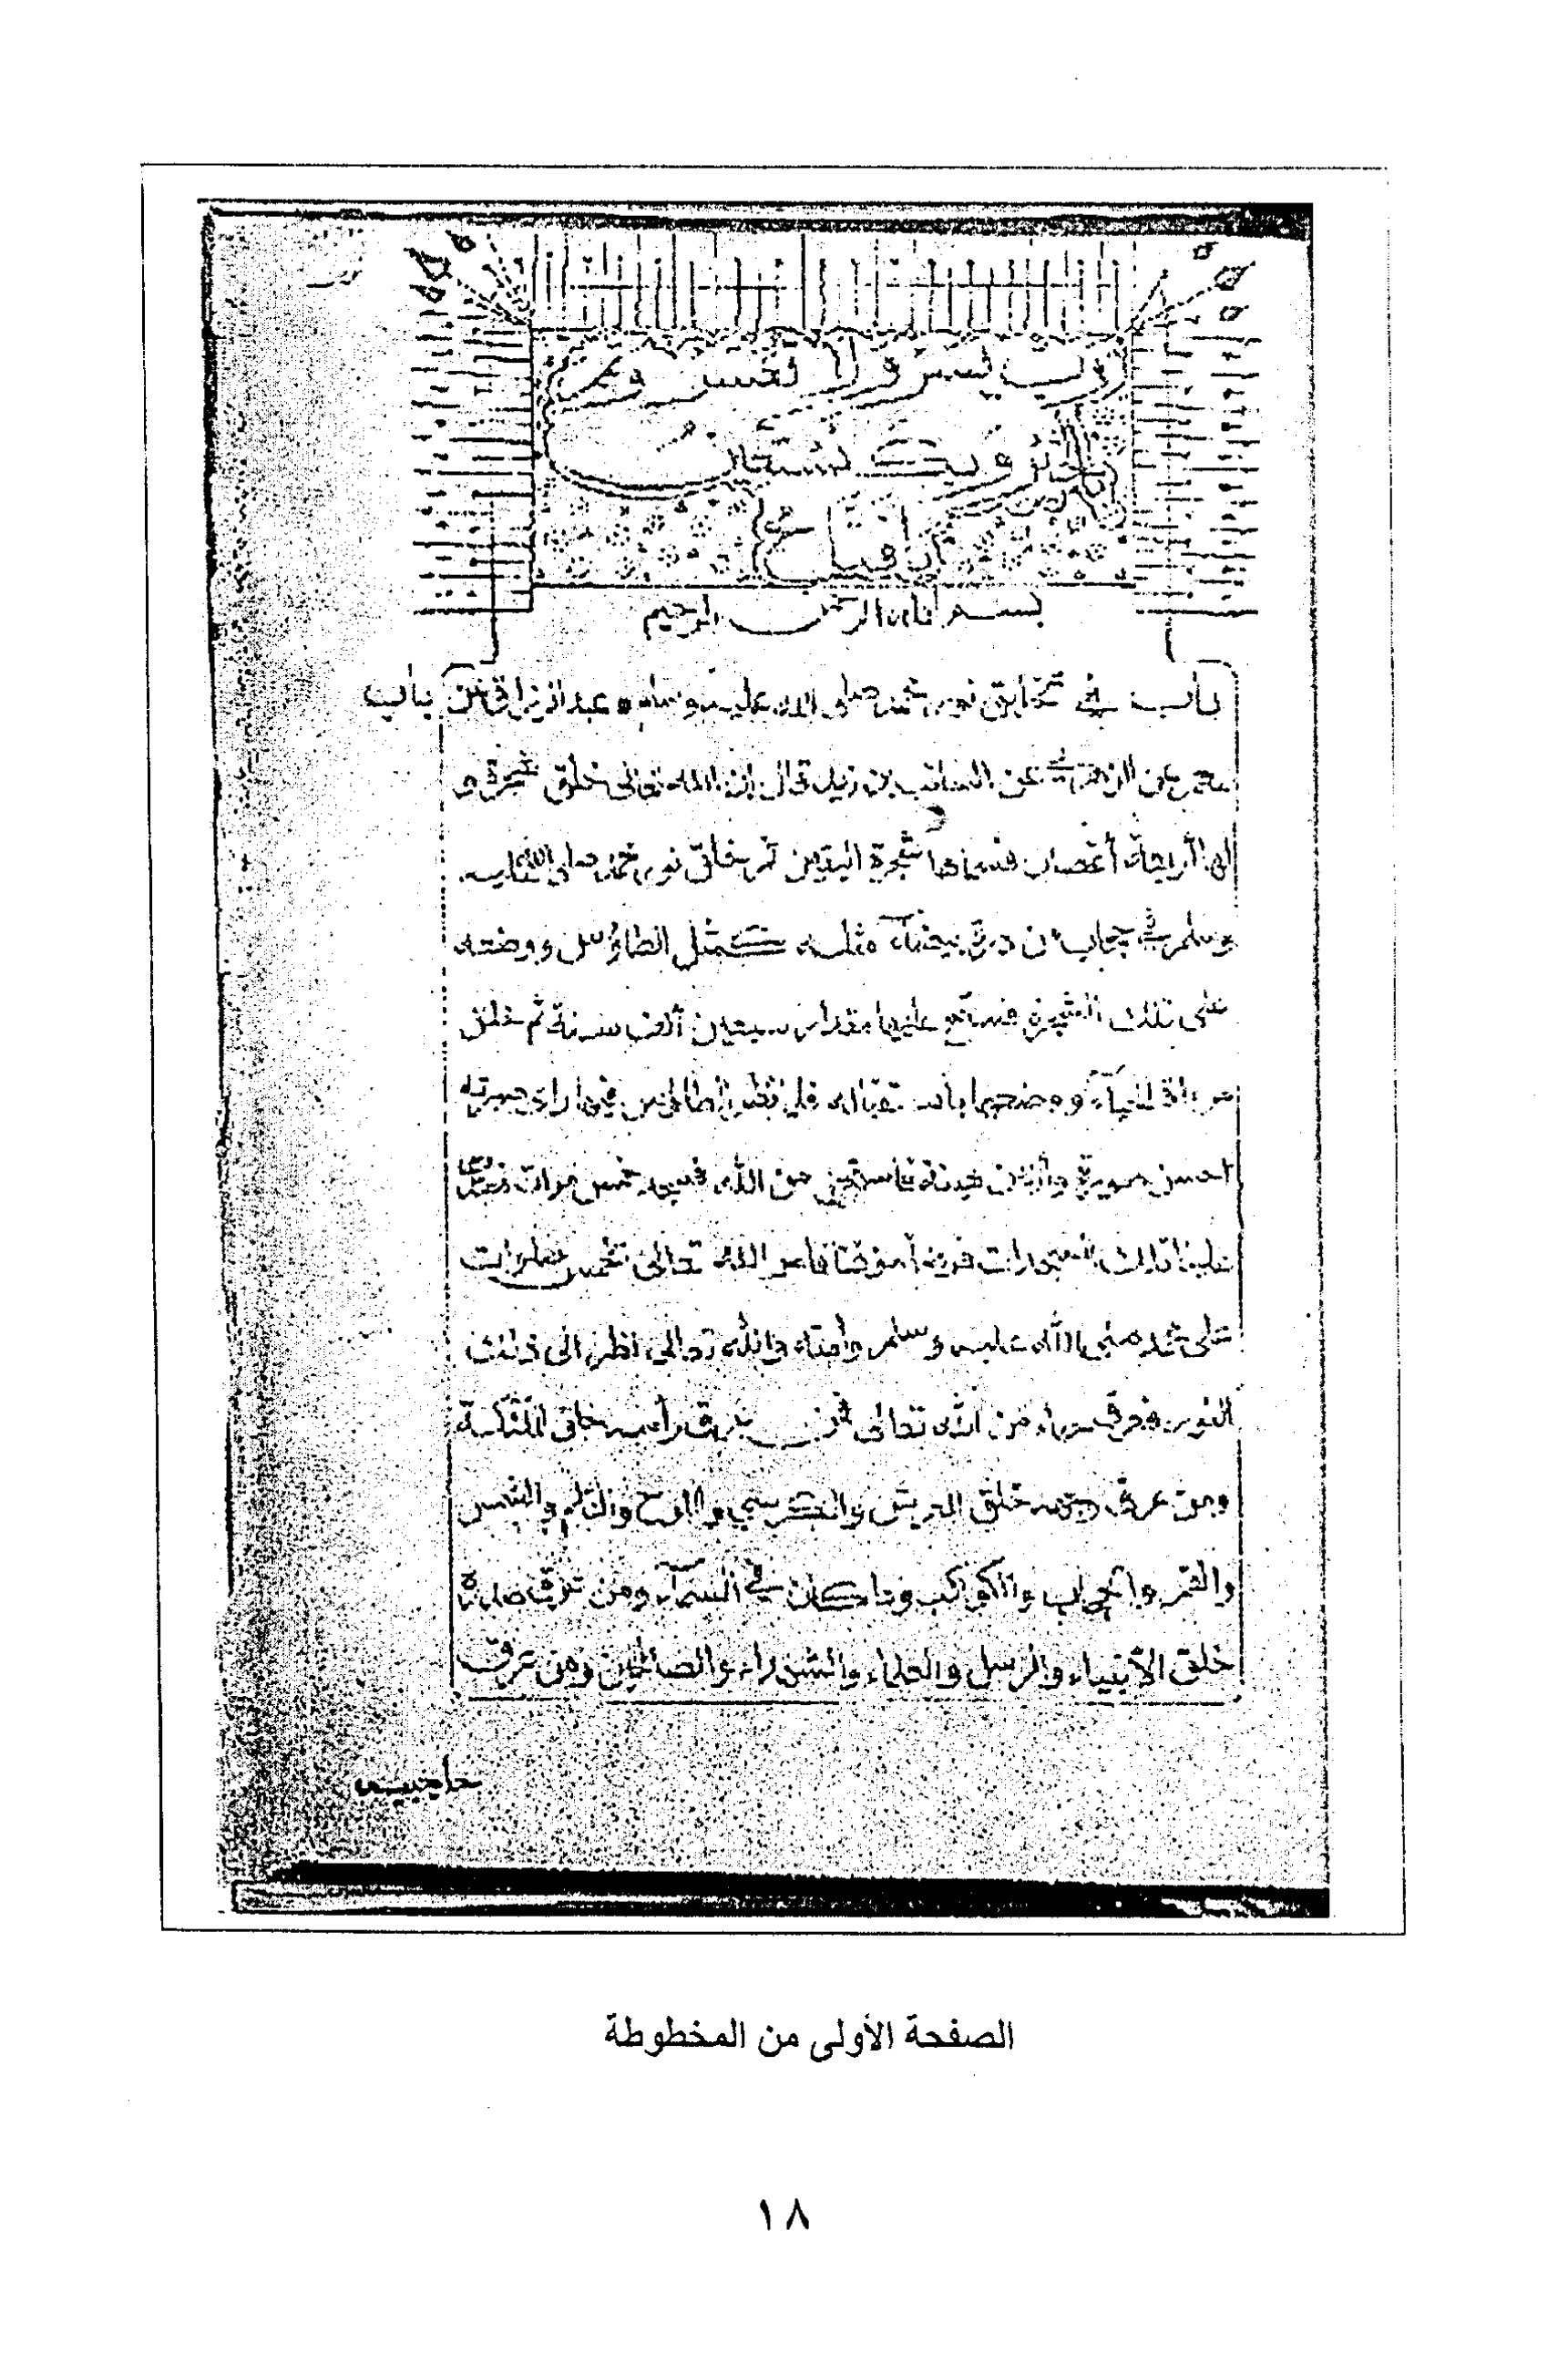 رب يسر ولا تعسر و
وبك نستعين
يا فتاح
بسم الله الرحمن الرحيم
باب في تخليق نور محمد صلى الله عليه وسلم عبد الرزاق عن باب
معمر عن الزهري عن السائب بن زيد قال إن الله تعالى خلق شجرة و
لها أربعة أغصان فسماها شجرة اليقين ثم خلق نور محمد صلى الله عليه
وسلم في حجاب من درة بيضآء مثله كمثل الطاؤس ووضعه
على تلك الشجرة فسبح عليها مقدار سبعين ألف سنة ثم خلق
مرأة الحيآء ووضعها باستقباله فلما نظر الطاؤس فيها راى صورته
احسن صورة وأزين هيئة فاستحى من الله فسجد خمس مرات
علينا تلك السجدات فرضا موقتا فامر الله تعالى بخمس صلوات
على محمد صلى الله عليه وسلم وأمته والله تعالى نظر الى ذلك
النور فعرق حياء من الله تعالى فمن عرق رأسه خلق الملئكة
ومن عرق وجهه خلق العرش والكرسي واللوح والقلم والشمس
والقمر والحجاب والكواكب وما كان في السمآء ومن عرق صدره
خلق الأنبياء والرسل والعلماء والشهداء والصالحين ومن عرق
حاجبيه
الصفحة الأولى من المخطوطة
١٨